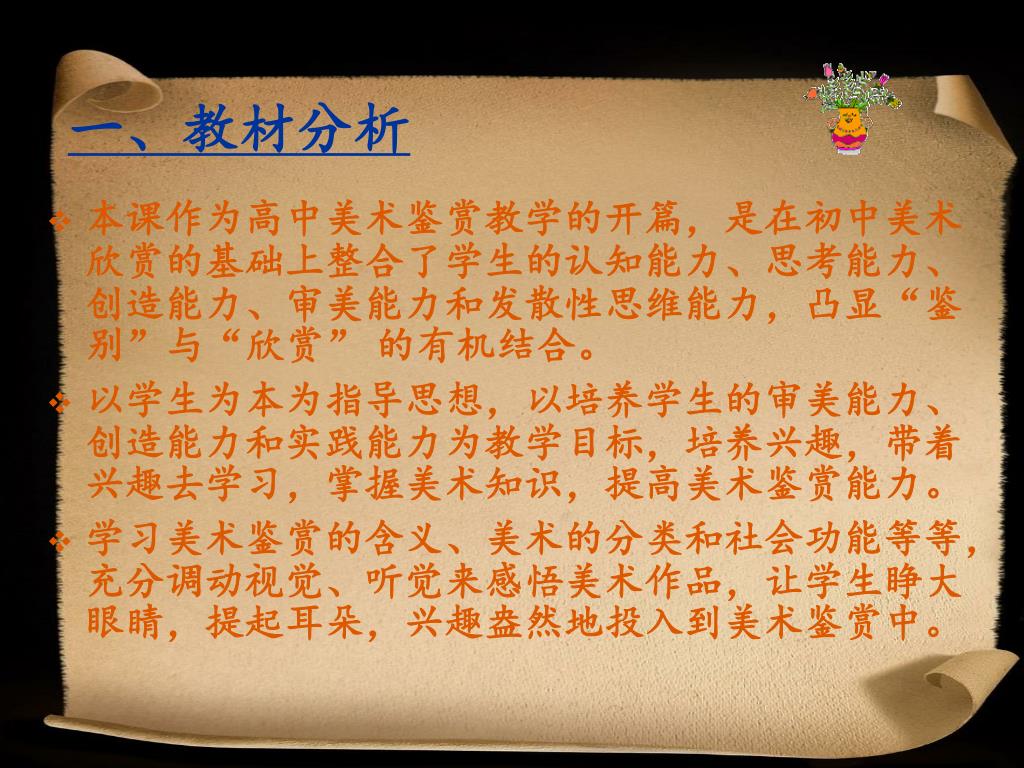 一、教材分析
本课作为高中美术鉴赏教学的开篇，是在初中美术
欣赏的基础上整合了学生的认知能力、思考能力、
创造能力、审美能力和发散性思维能力，凸显“鉴
别”与“欣赏” 的有机结合。
以学生为本为指导思想，以培养学生的审美能力、
创造能力和实践能力为教学目标，培养兴趣，带着
兴趣去学习，掌握美术知识，提高美术鉴赏能力。
学习美术鉴赏的含义、美术的分类和社会功能等等，
充分调动视觉、听觉来感悟美术作品，让学生睁大
眼睛，提起耳朵，兴趣盎然地投入到美术鉴赏中。